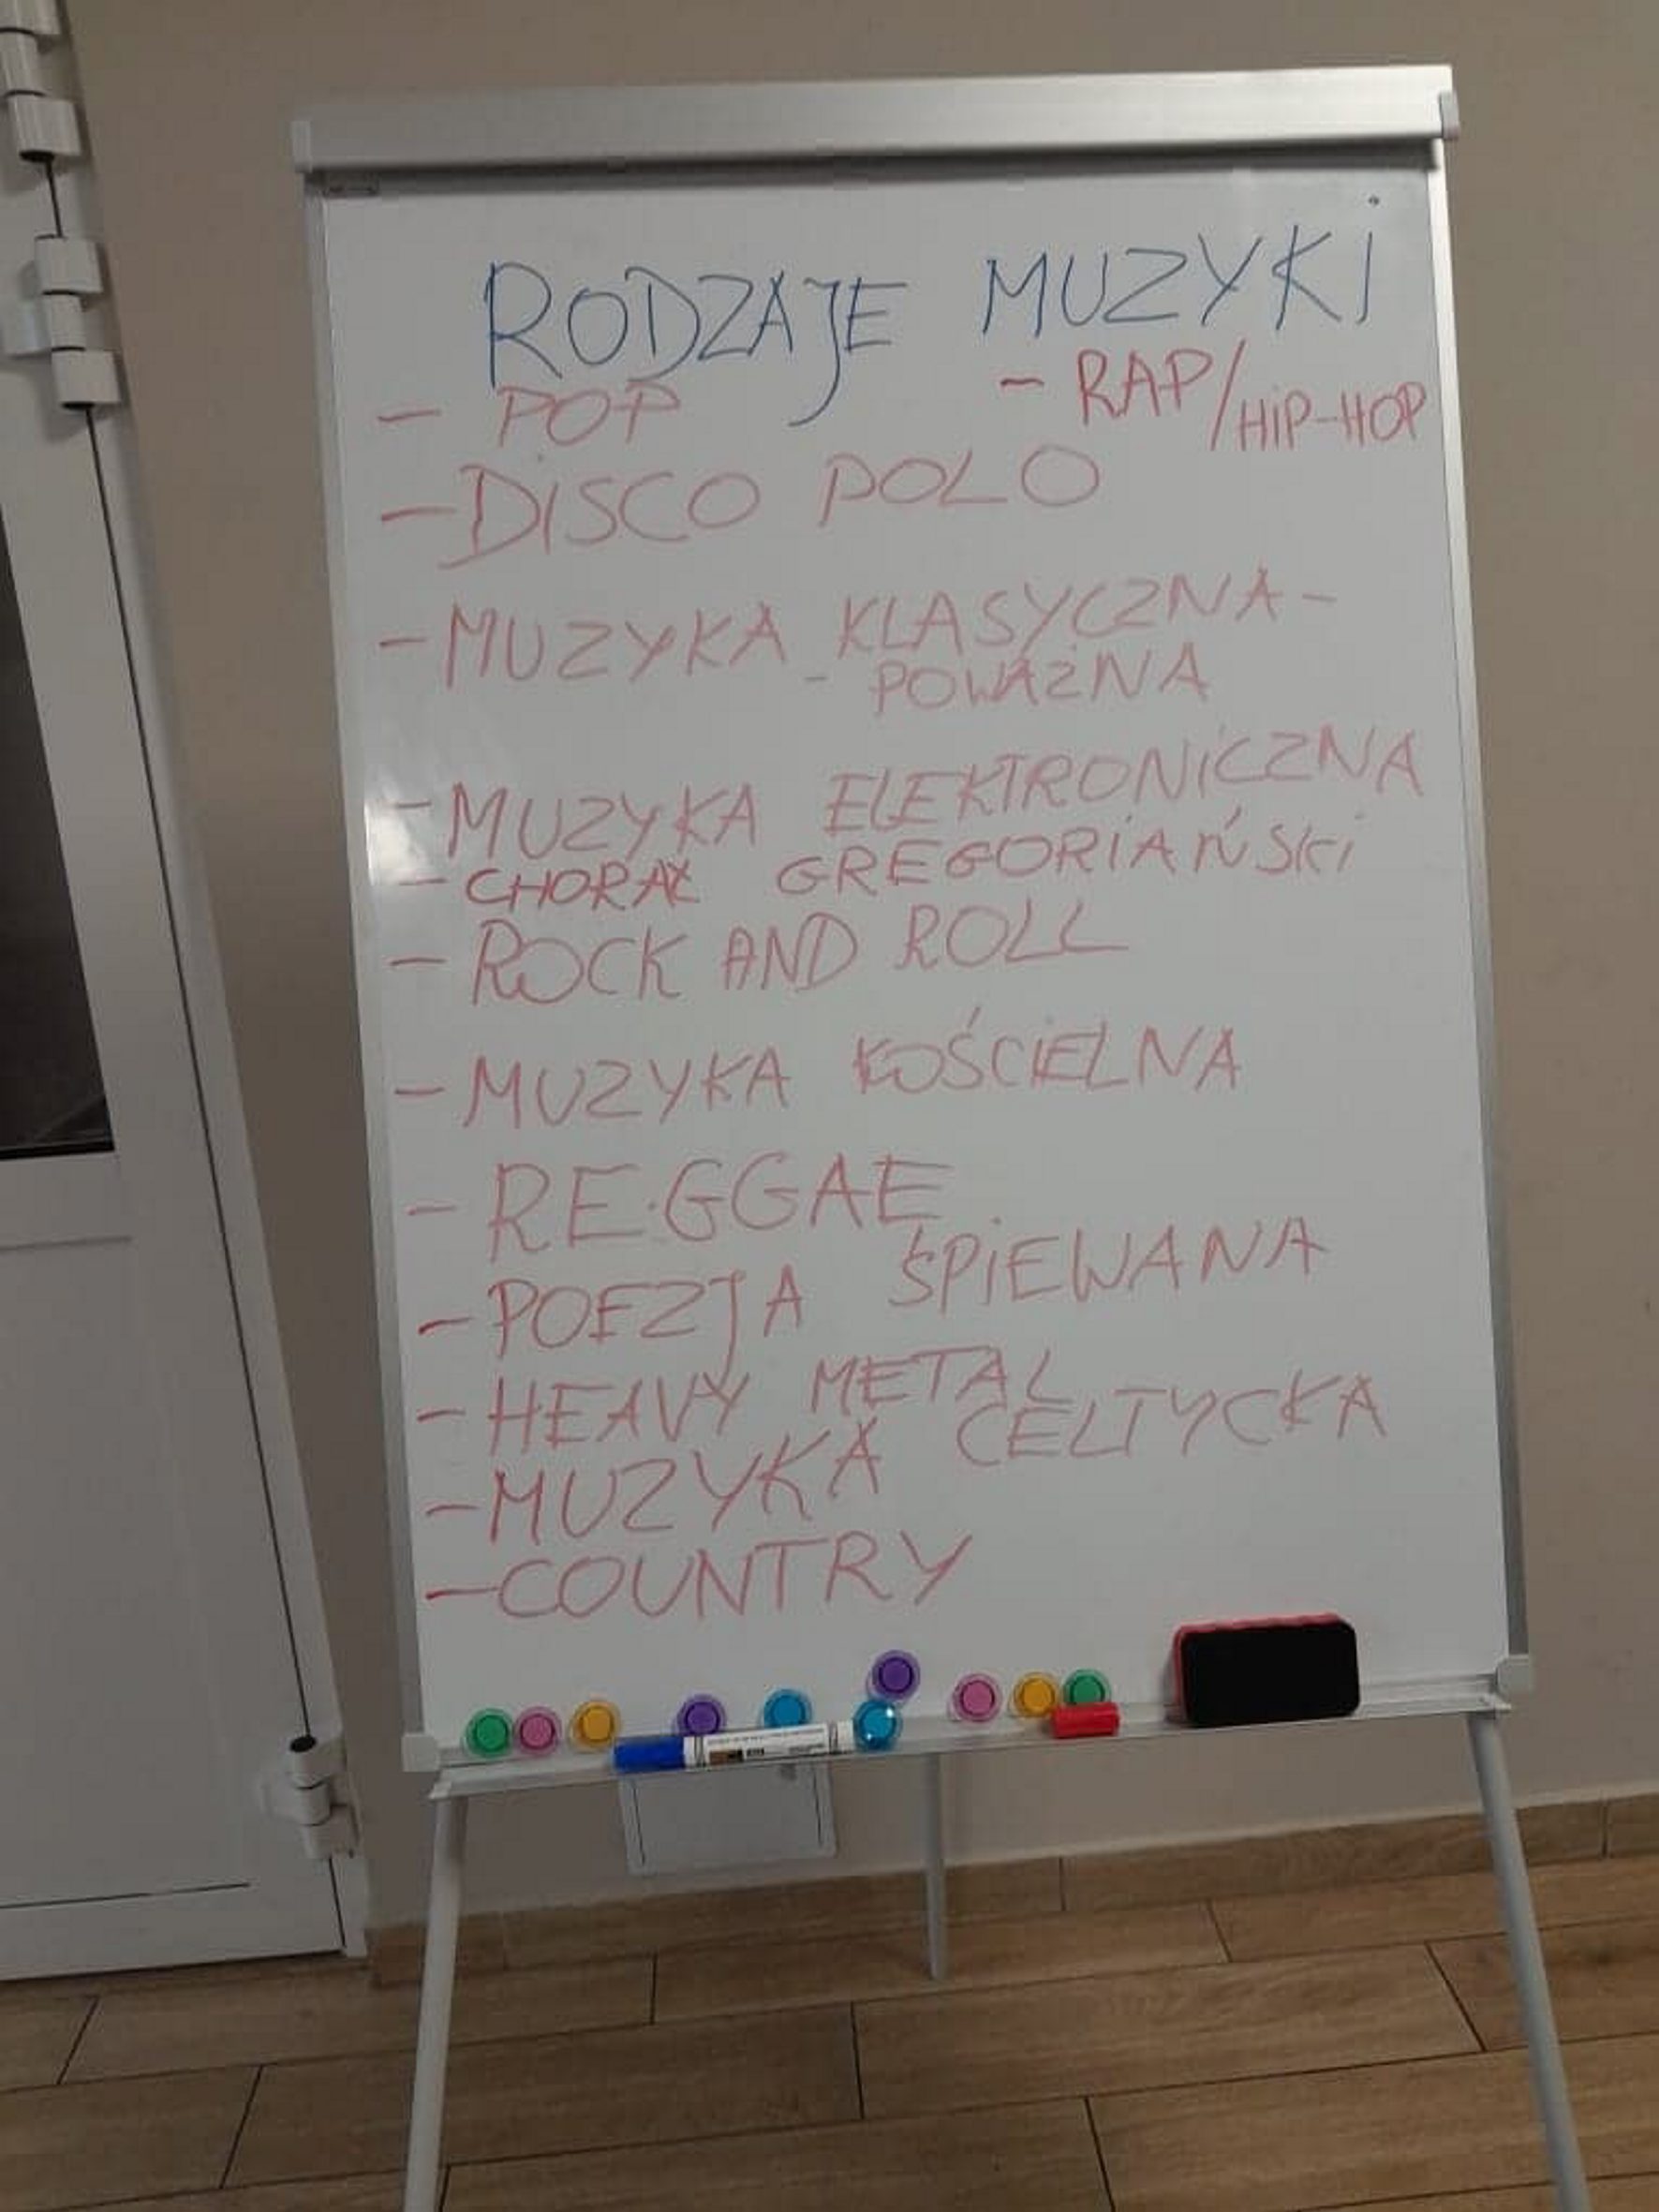 RODZAJE MUZYKi
- POP - RAP/HiP-HOP
- DiSCO POLO
- MUZYKA KLASYCZNA -
- POWAŻNA
- MUZYKA ELEKTRONiCZNA
- CHORAŁ GREGORiAŃSKi
- ROCK AND ROLL
- MUZYKA KOŚCiELNA
- REGGAE
- POEZJA ŚPiEWANA
- HEAVY METAL
- MUZYKA CELTYCKA
- COUNTRY